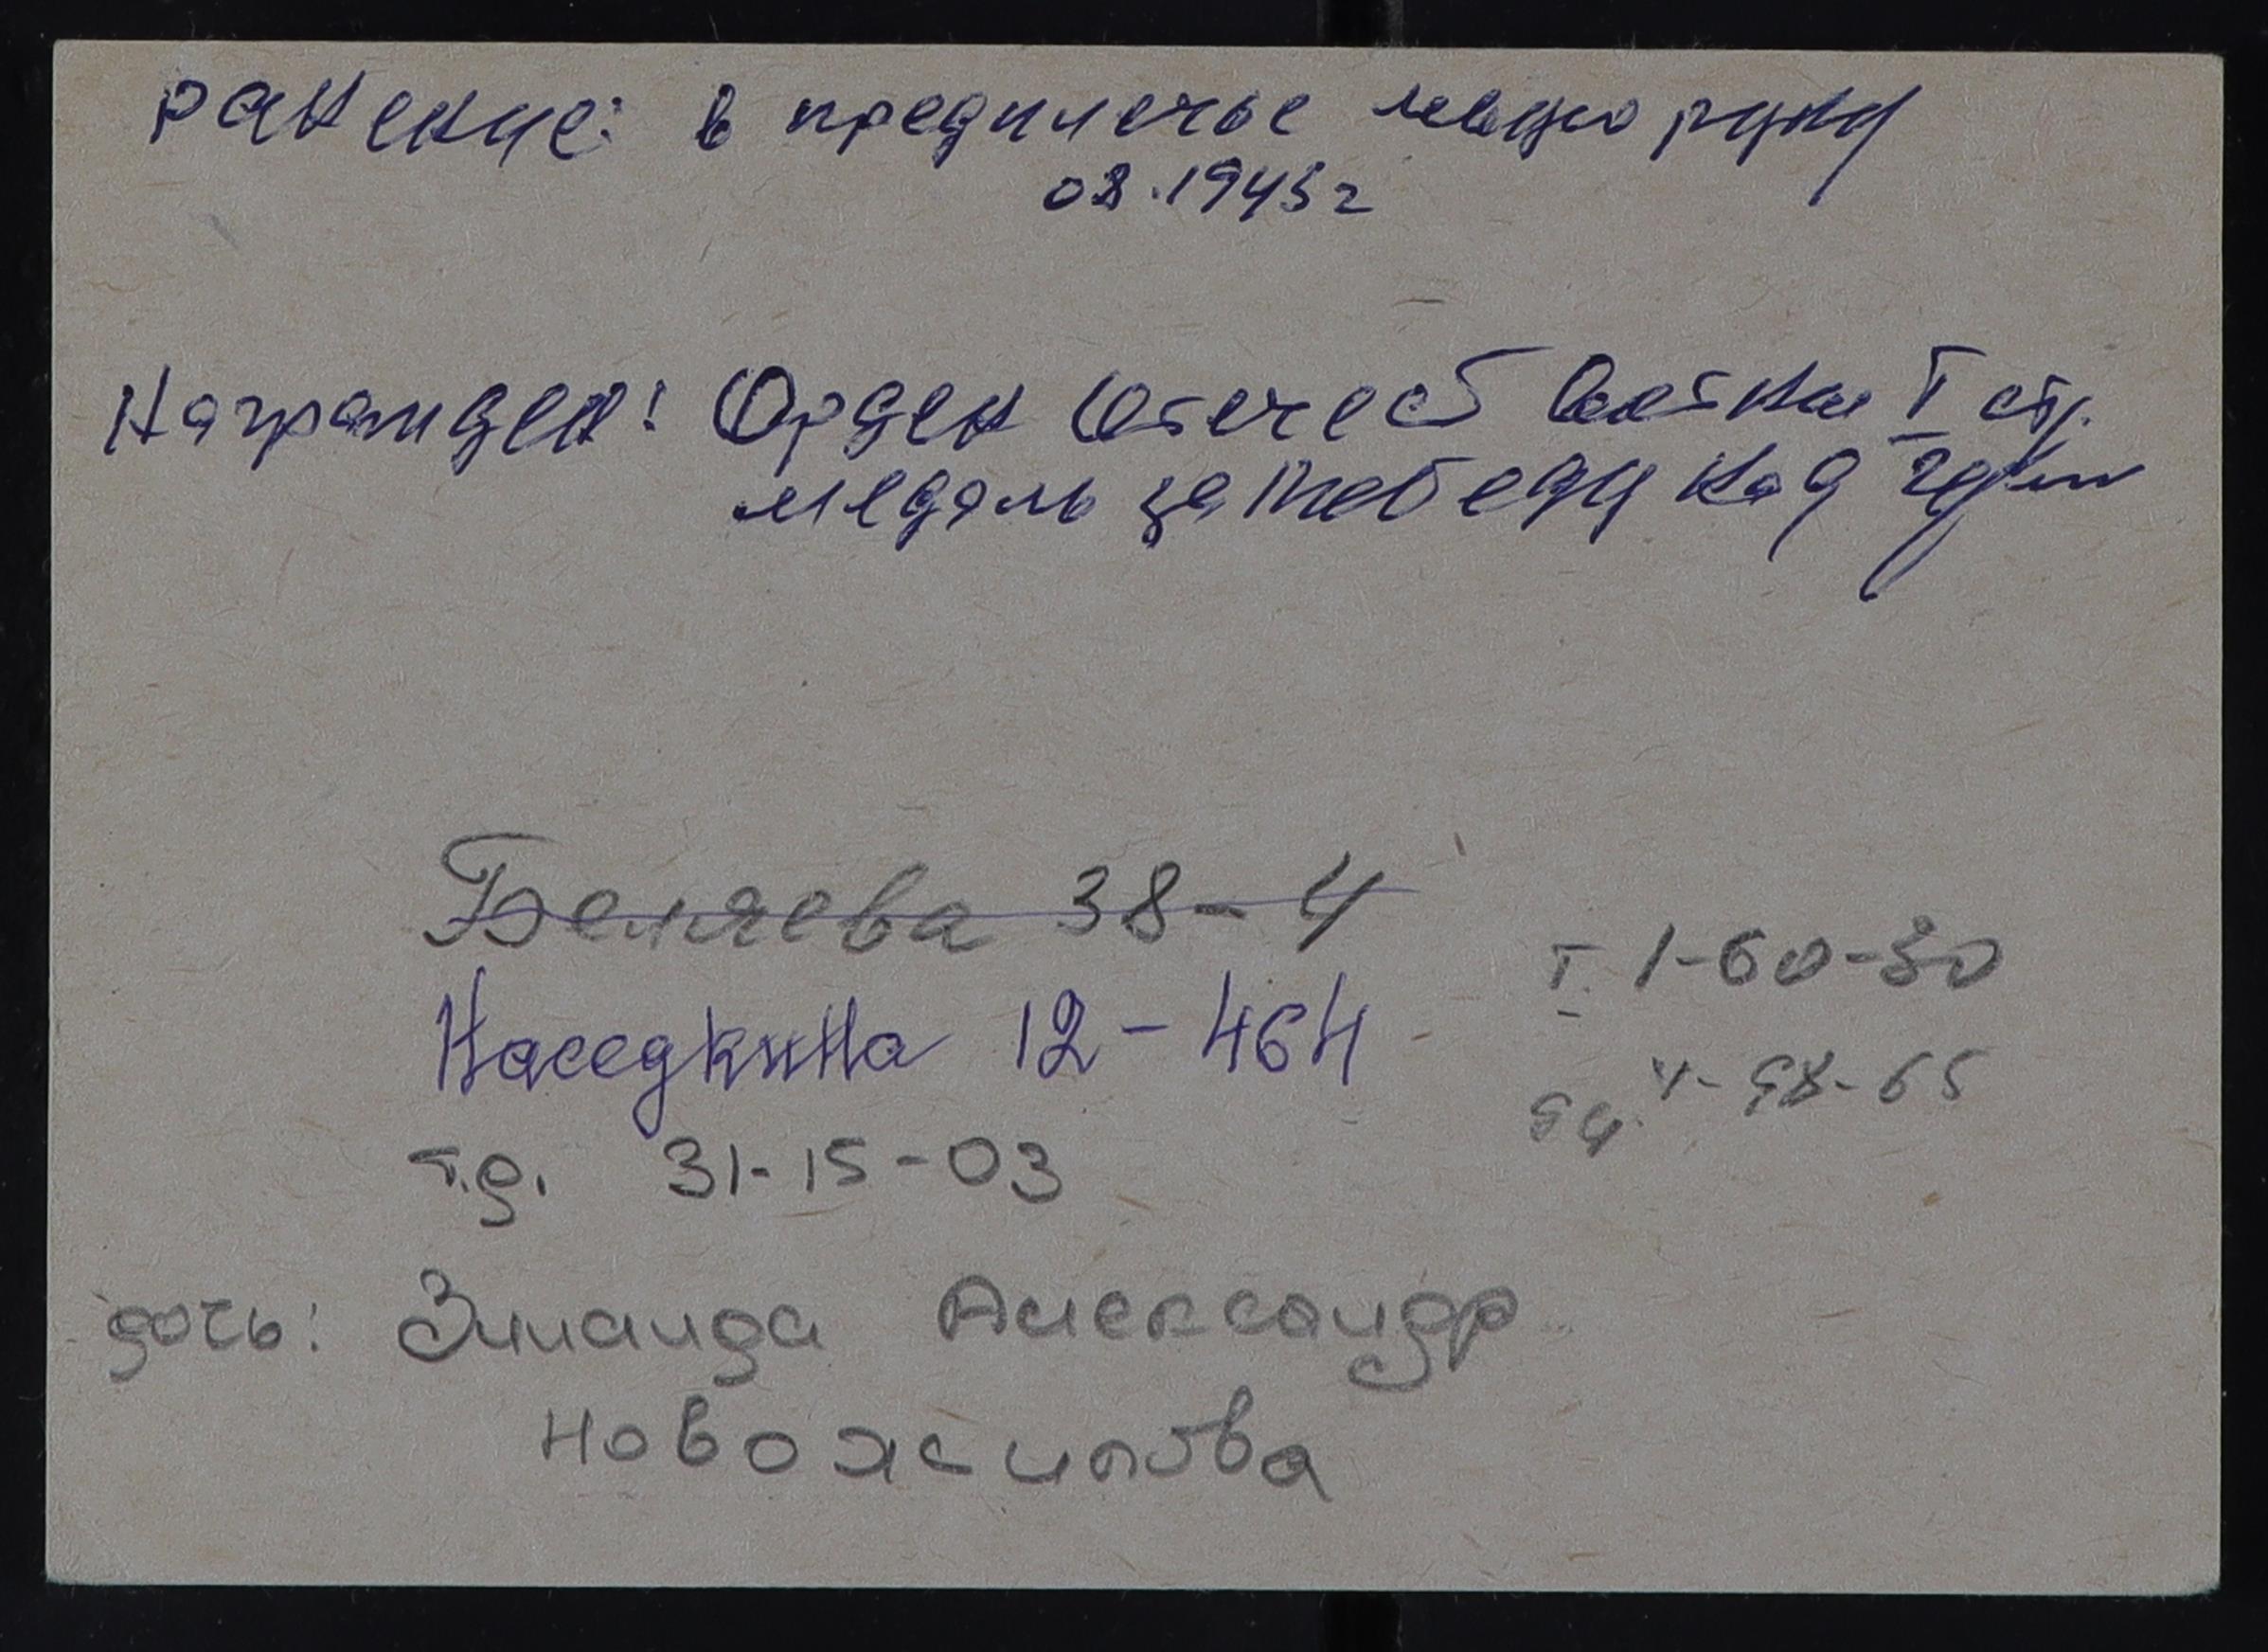 ранение: в предплечье левую руку
08.1943г
Награжден: Орден Отечест I ст.
медаль за Победу над герм
Беляева 38-4
Наседкина 12-464
т.д. 31-15-03
т. 1-60-30
4-98-65
дочь: Зинаида Александр
Новожилова